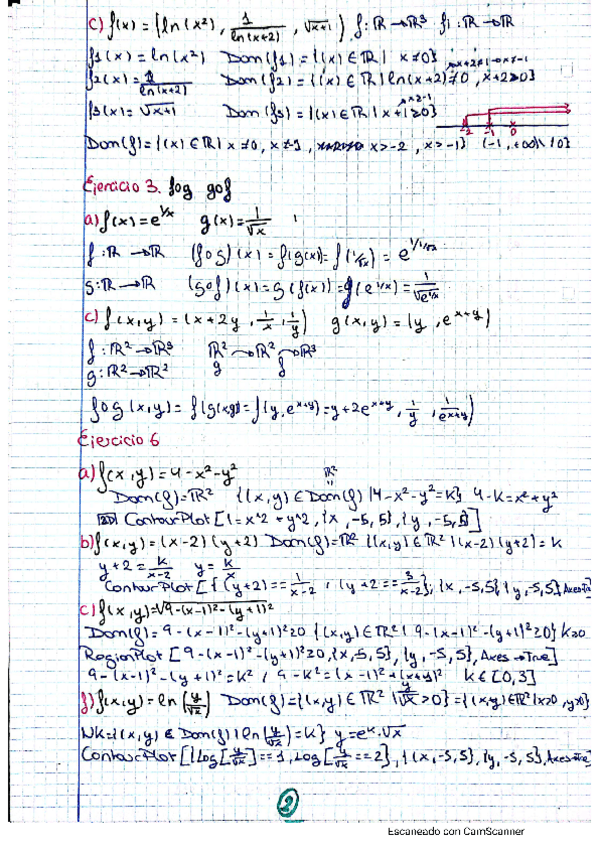 c) f(x) = (ln(x²), 1/ln(x+2), √x+1) f: ℝ → ℝ³ fi: ℝ → ℝ
f1(x) = ln(x²) Dom(f1) = {(x) ∈ ℝ | x ≠ 0} x+2≠1→x≠-1
f2(x) = 1/ln(x+2) Dom(f2) = {(x) ∈ ℝ | ln(x+2) ≠ 0, x+2>0}
x≥-1
f3(x) = √x+1 Dom(f3) = {(x) ∈ ℝ | x+1≥0}
-2 -1 0
Dom(f) = {(x) ∈ ℝ | x≠0, x≠-1, x>-2, x>-1} (-1, +∞)\{0}
Ejercicio 3. fog gof
a) f(x) = e^1/x g(x) = 1/√x
f: ℝ → ℝ (fog)(x) = f(g(x)) = f(1/√x) = e^1/1/√x
g: ℝ → ℝ (gof)(x) = g(f(x)) = g(e^1/x) = 1/√e^1/x
c) f(x,y) = (x+2y, 1/x, 1/y) g(x,y) = (y, e^x+y)
f: ℝ² → ℝ³ ℝ² → ℝ² → ℝ³
g: ℝ² → ℝ² g f
fog(x,y) = f(g(x,y)) = f(y, e^x+y) = y+2e^x+y, 1/y, 1/e^x+y)
Ejercicio 6
a) f(x,y) = 4-x²-y² ℝ²
Dom(f) = ℝ² {(x,y) ∈ Dom(f) | 4-x²-y² = k} 4-k = x²+y²
ContourPlot [1 = x^2 + y^2, {x, -5, 5}, {y, -5, 5}]
b) f(x,y) = (x-2)(y+2) Dom(f) = ℝ² {(x,y) ∈ ℝ² | (x-2)(y+2) = k
y+2 = k/x-2 y = k/x
ContourPlot [{(y+2) == 1/x-2, (y+2 == 3/x-2}, {x, -5, 5}, {y, -5, 5}, Axes→True]
c) f(x,y) = √9-(x-1)²-(y+1)²
Dom(f) = 9-(x-1)²-(y+1)²≥0 {(x,y) ∈ ℝ² | 9-(x-1)²-(y+1)²≥0} k≥0
RegionPlot [9-(x-1)²-(y+1)²≥0, {x, -5, 5}, {y, -5, 5}, Axes→True]
9-(x-1)²-(y+1)² = k², 9-k² = (x-1)²+(x+y)² k ∈ [0,3]
f) f(x,y) = ln(y/√x) Dom(f) = {(x,y) ∈ ℝ² | y/√x > 0} = {(x,y) ∈ ℝ² | x>0, y>0}
Nk = {(x,y) ∈ Dom(f) | ln(y/√x) = k} y = e^k·√x
ContourPlot [{Log[y/√x] == 1, Log[y/√x == 2}, {x, -5, 5}, {y, -5, 5}, Axes→True]
2
Escaneado con CamScanner